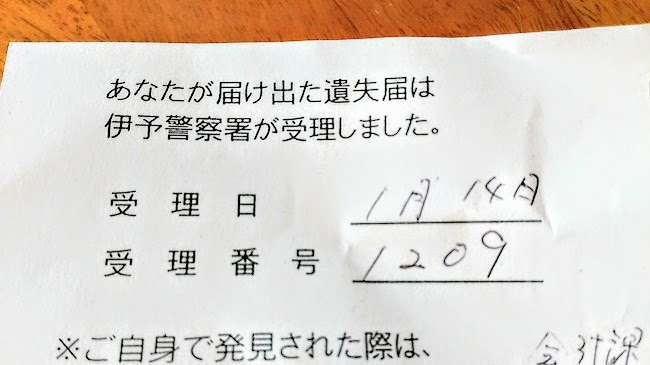 あなたが届け出た遺失届は
伊予警察署が受理しました。
受理日 1月14日
受理番号 1209
※ご自身で発見された際は、 会計課